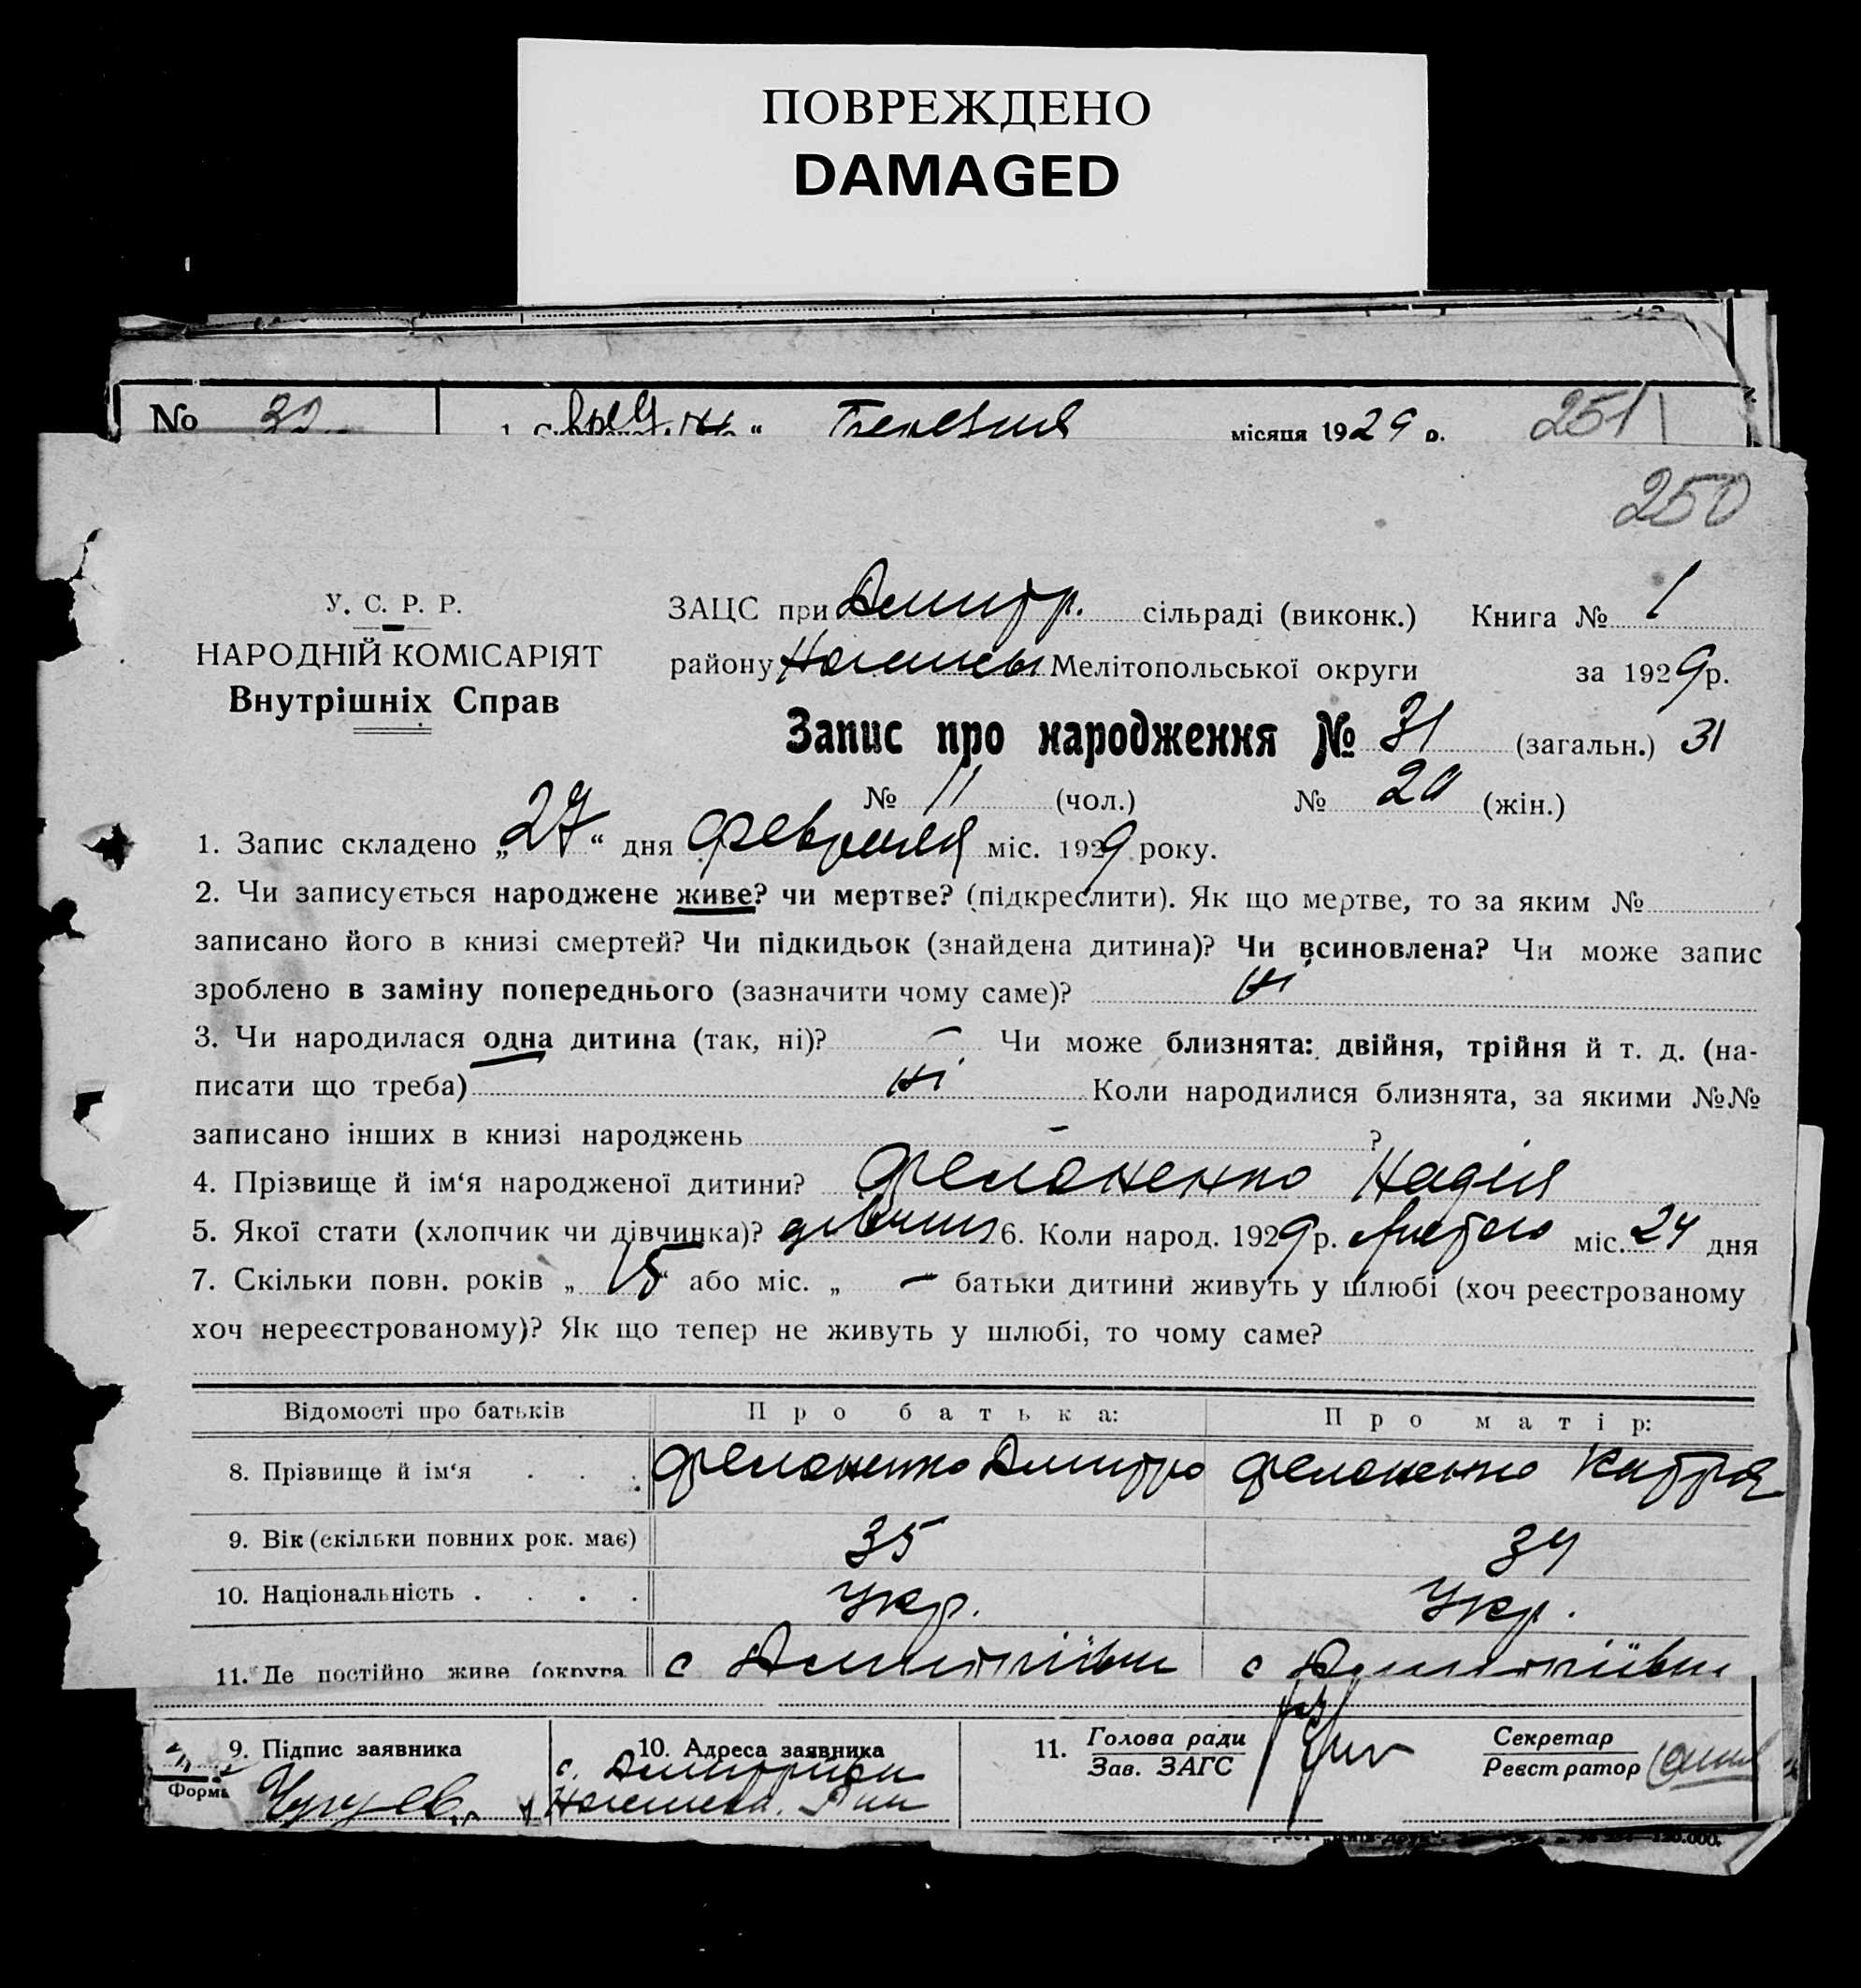 ПОВРЕЖДЕНО
DAMAGED
№ 32 Березня місяця 1929 р. 251
250
У. С. Р. Р.
НАРОДНІЙ КОМІСАРІЯТ
Внутрішніх Справ
ЗАЦС при Дмитр. сільраді (виконк.) Книга № 1
району Мелітопольської округи за 1929 р.
Запис про народження № 31 (загальн.) 31
№ 11 (чол.) № 20 (жін.)
1. Запис складено „27“ дня февраля міс. 1929 року.
2. Чи записується народжене живе? чи мертве? (підкреслити). Як що мертве, то за яким №
записано його в книзі смертей? Чи підкидьок (знайдена дитина)? Чи всиновлена? Чи може запис
зроблено в заміну попереднього (зазначити чому саме)? ні
3. Чи народилася одна дитина (так, ні)? — Чи може близнята: двійня, трійня й т. д. (на-
писати що треба) ні Коли народилися близнята, за якими №№
записано інших в книзі народжень — ?
4. Прізвище й ім‘я народженої дитини? Фелоненко Надія
5. Якої стати (хлопчик чи дівчинка)? дівчин 6. Коли народ. 1929 р. Лютого міс. 24 дня
7. Скільки повн. років „15“ або міс. „ — “ батьки дитини живуть у шлюбі (хоч реєстрованому
хоч нереєстрованому)? Як що тепер не живуть у шлюбі, то чому саме?
Відомості про батьків Про батька: Про матір:
8. Прізвище й ім‘я . . . Фелоненко Дмитро Фелоненко Катря
9. Вік (скільки повних рок. має) 35 34
10. Національність . . . . Укр. Укр.
11. Де постійно живе (округа с Дмитріївки с Дмитріївки
9. Підпис заявника 10. Адреса заявника 11. Голова ради Секретар
Зав. ЗАГС Реєстратор
с. Дмитрівки
Форма
120.000.